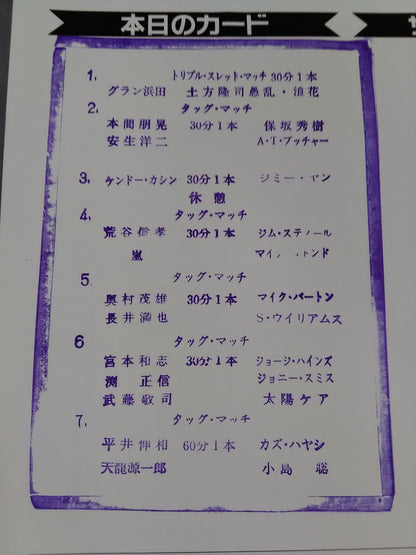 本日のカード
1. トリプル・スレット・マッチ 30分1本
グラン浜田 土方隆司 愚乱・浪花
2. タッグ・マッチ
本間朋晃 30分1本 保坂秀樹
安生洋二 A・T・ブッチャー
3. ケンドー・カシン 30分1本 ジミー・ヤン
休憩
4. タッグ・マッチ
荒谷信孝 30分1本 ジム・スティール
嵐
5 タッグ・マッチ
奥村茂雄 30分1本 マイク・バートン
長井満也 S・ウイリアムス
6 タッグ・マッチ
宮本和志 30分1本 ジョージ・ハインズ
渕 正信 ジョニー・スミス
武藤敬司 太陽ケア
7. タッグ・マッチ
平井伸和 60分1本 カズ・ハヤシ
天龍源一郎 小島 聡